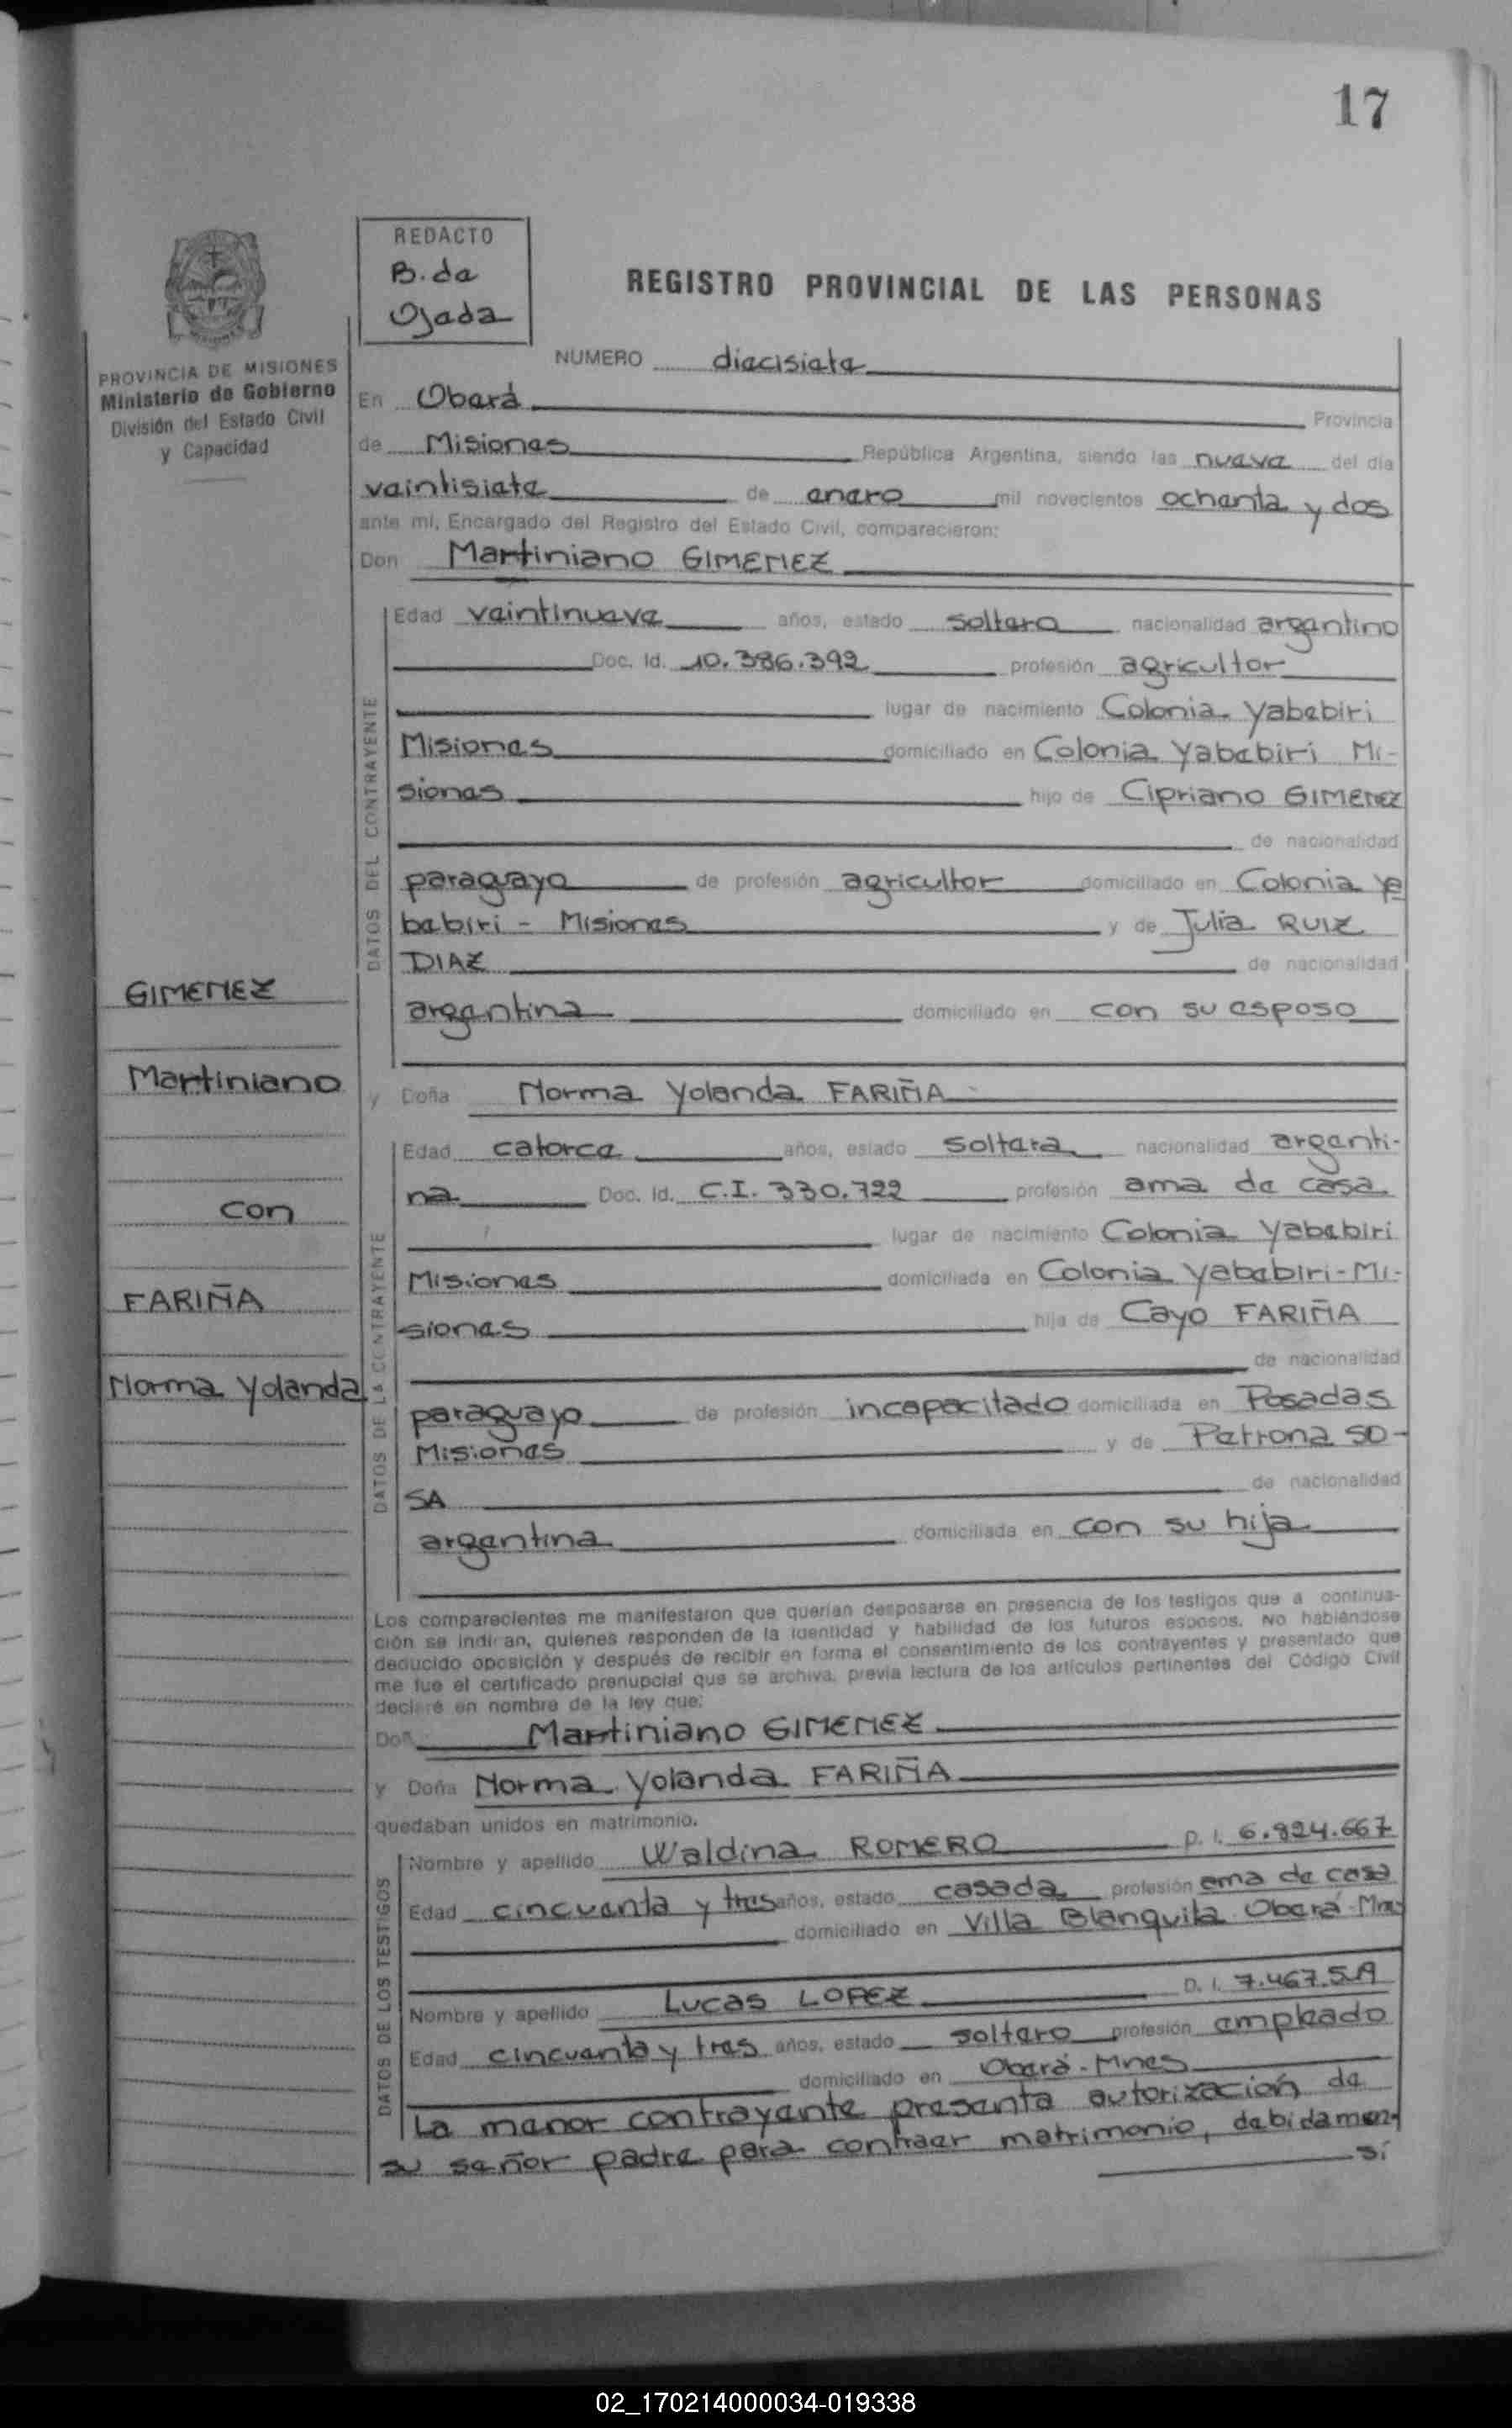 17
REDACTO
B. da
Ojeda
REGISTRO PROVINCIAL DE LAS PERSONAS
PROVINCIA DE MISIONES
Ministerio de Gobierno
División del Estado Civil
y Capacidad
NUMERO diecisiete
En Oberá Provincia
de Misiones República Argentina, siendo las nueve del día
veintisiete de enero mil novecientos ochenta y dos
ante mí, Encargado del Registro del Estado Civil, comparecieron:
Don Martiniano GIMENEZ
DATOS DEL CONTRAYENTE
Edad veintinueve años, estado soltero nacionalidad argentino
Doc. Id. 10.386.392 profesión agricultor
lugar de nacimiento Colonia Yabebiri
Misiones domiciliado en Colonia Yabebiri Mi-
siones hijo de Cipriano GIMENEZ
de nacionalidad
paraguayo de profesión agricultor domiciliado en Colonia Ye
bebiri - Misiones y de Julia RUIZ
DIAZ de nacionalidad
argentina domiciliado en con su esposo
GIMENEZ
Martiniano
con
FARIÑA
Norma Yolanda
y Doña Norma Yolanda FARIÑA
DATOS DE LA CONTRAYENTE
Edad catorce años, estado soltera nacionalidad argenti-
na Doc. Id. C.I. 330.722 profesión ama de casa
lugar de nacimiento Colonia Yabebiri
Misiones domiciliada en Colonia Yabebiri-Mi-
siones hija de Cayo FARIÑA
de nacionalidad
paraguayo de profesión incapacitado domiciliada en Posadas
Misiones y de Petrona SO-
SA de nacionalidad
argentina domiciliada en con su hija
Los comparecientes me manifestaron que querían desposarse en presencia de los testigos que a continua-
ción se indican, quienes responden de la identidad y habilidad de los futuros esposos. No habiéndose
deducido oposición y después de recibir en forma el consentimiento de los contrayentes y presentado que
me fue el certificado prenupcial que se archiva, previa lectura de los artículos pertinentes del Código Civil
declaré en nombre de la ley que:
Don Martiniano GIMENEZ
y Doña Norma Yolanda FARIÑA
quedaban unidos en matrimonio.
DATOS DE LOS TESTIGOS
Nombre y apellido Waldina ROMERO D. I. 6.824.667
Edad cincuenta y tres años, estado casada profesión ama de casa
domiciliado en Villa Blanquita Oberá-Mnes
Nombre y apellido Lucas LOPEZ D. I.
Edad cincuenta y tres años, estado soltero profesión empleado
domiciliado en Oberá-Mnes
La menor contrayente presenta autorización de
su señor padre para contraer matrimonio, debidamen-
si
02_170214000034-019338